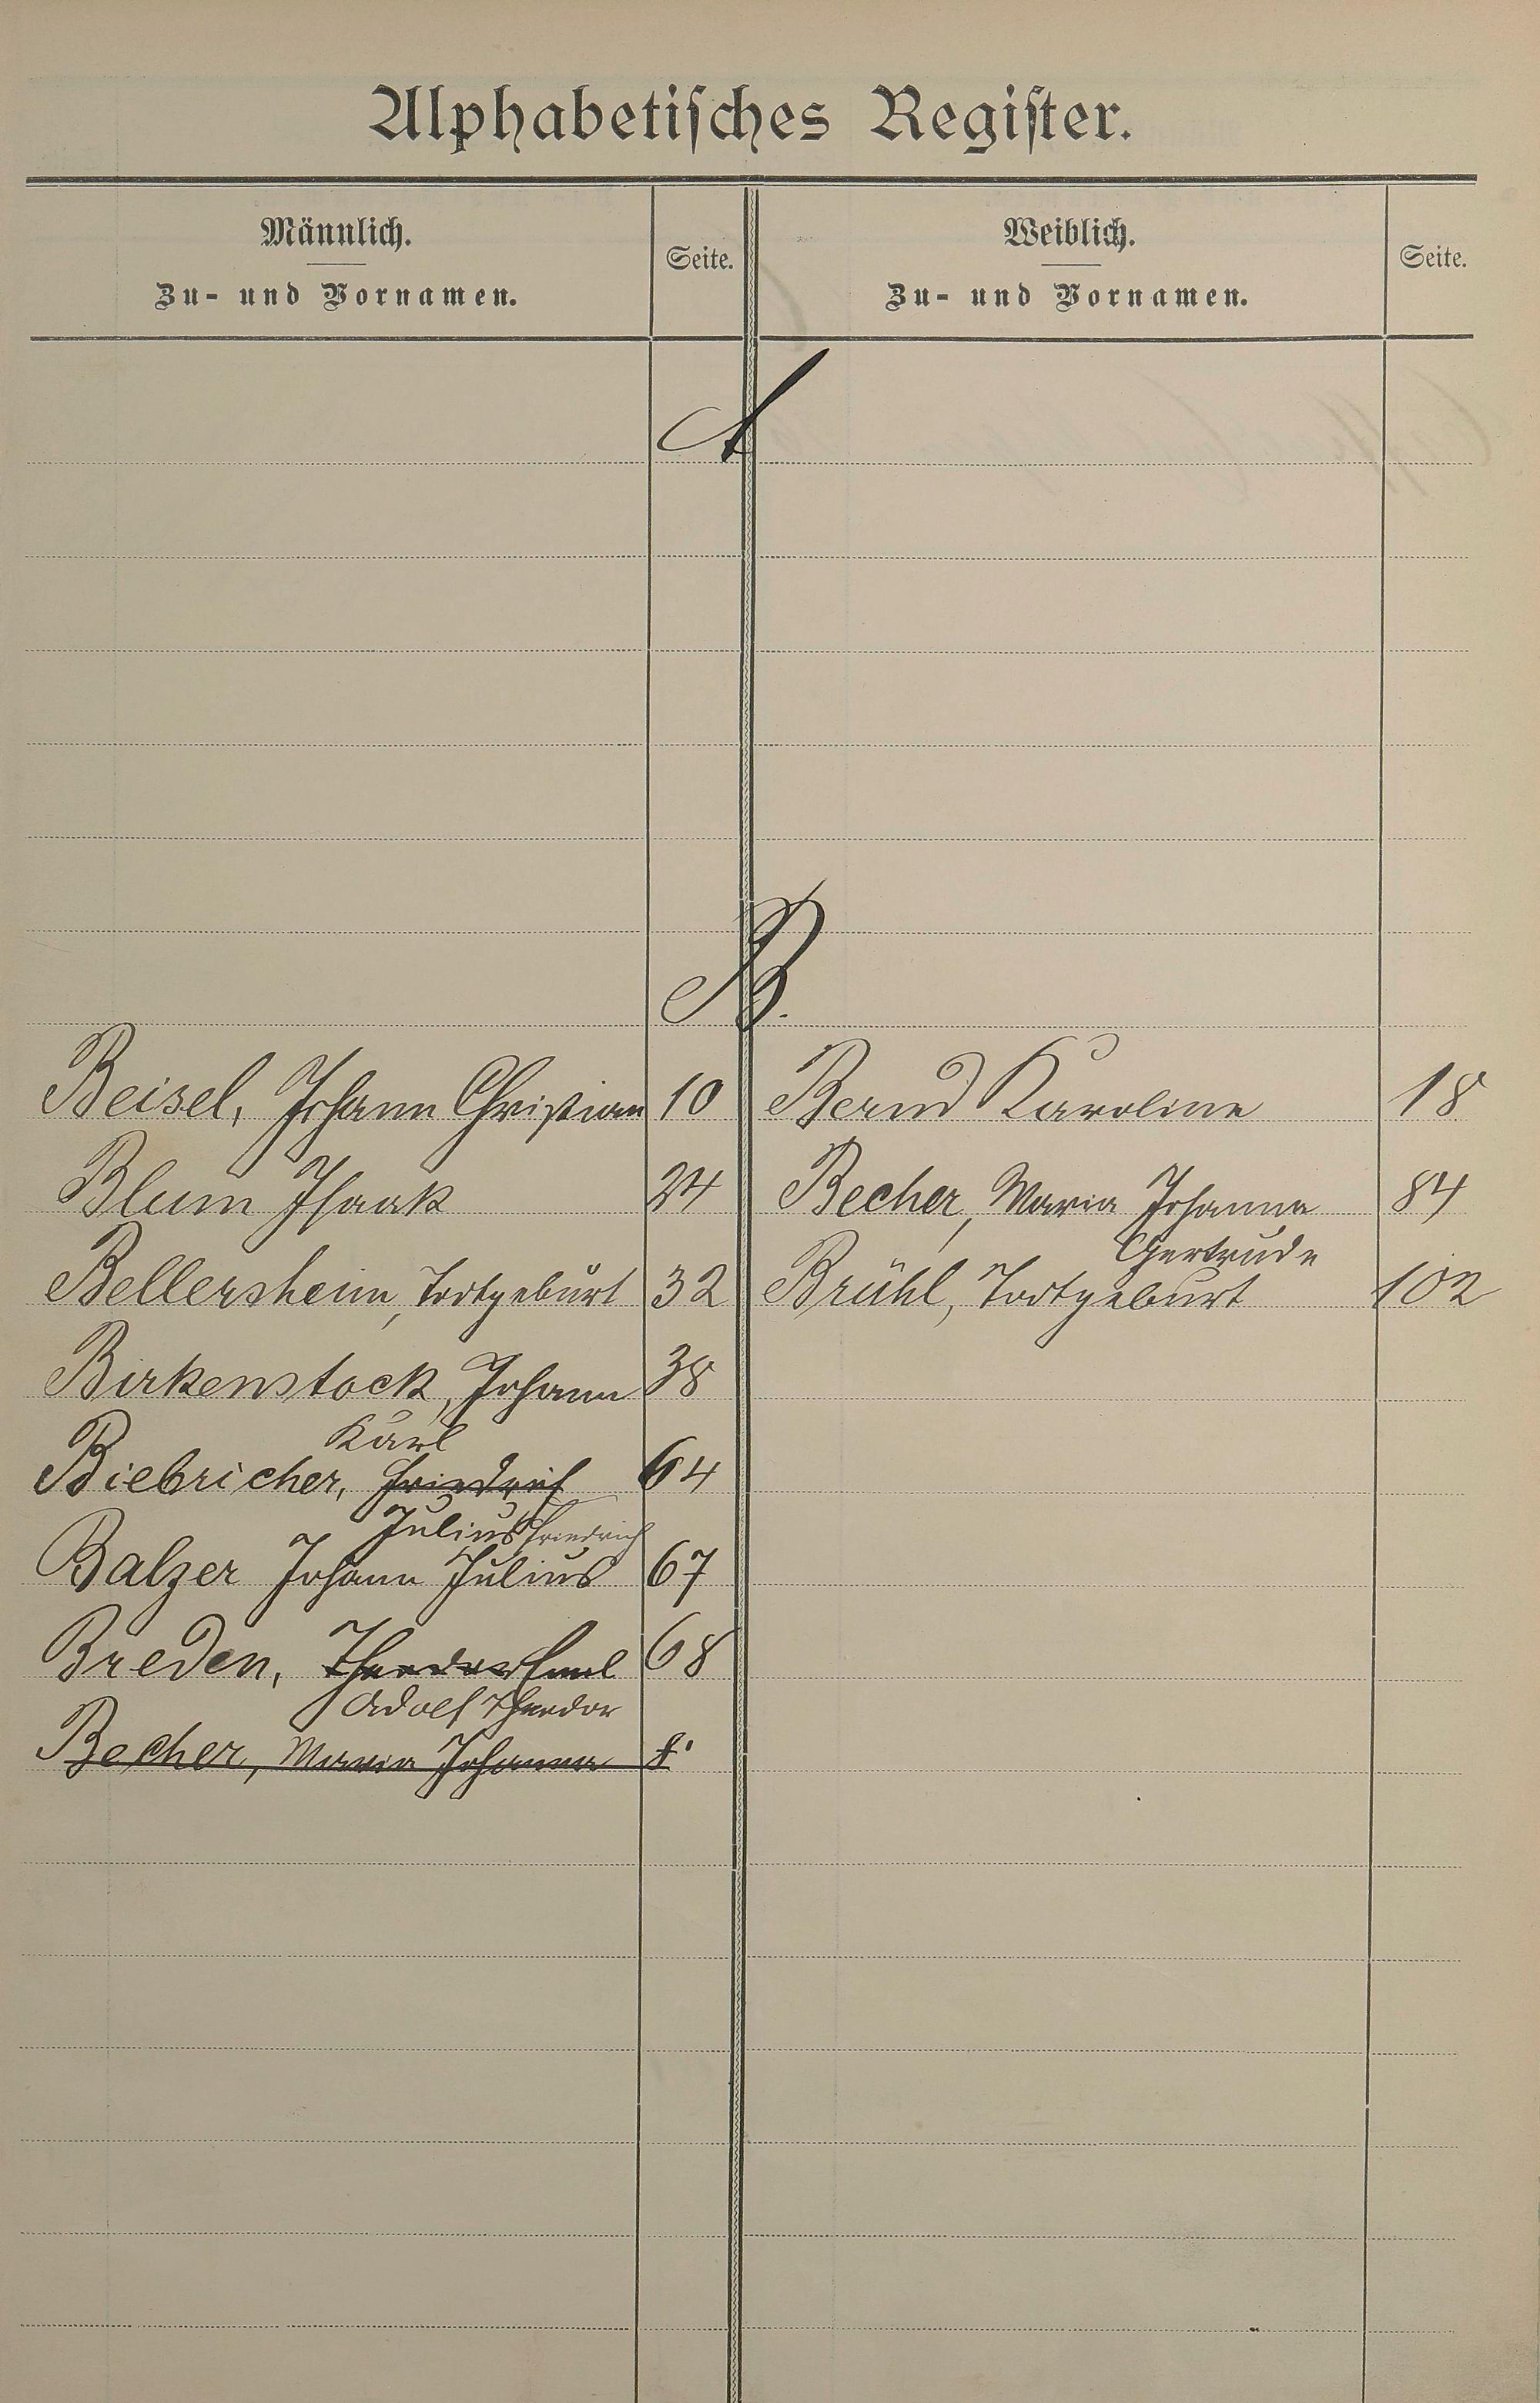 Alphabetisches Register.
Männlich.
Zu- und Vornamen.
Seite.
Weiblich.
Zu- und Vornamen.
Seite.
A
B.
Beisel, Johann Christian 10 Bernd Karoline 18
Blum Isaak 24 Becher, Maria Johanna 84
Gertrude
Bellersheim, Todtgeburt 32 Brühl, Todtgeburt 102
Birkenstock, Johann 38
Karl
Biebricher, Friedrich 64
Julius Friedrich
Balzer Johann Julius 67
Breden, Theodor Emil 68
Adolf Theodor
Becher, Maria Johanna 8